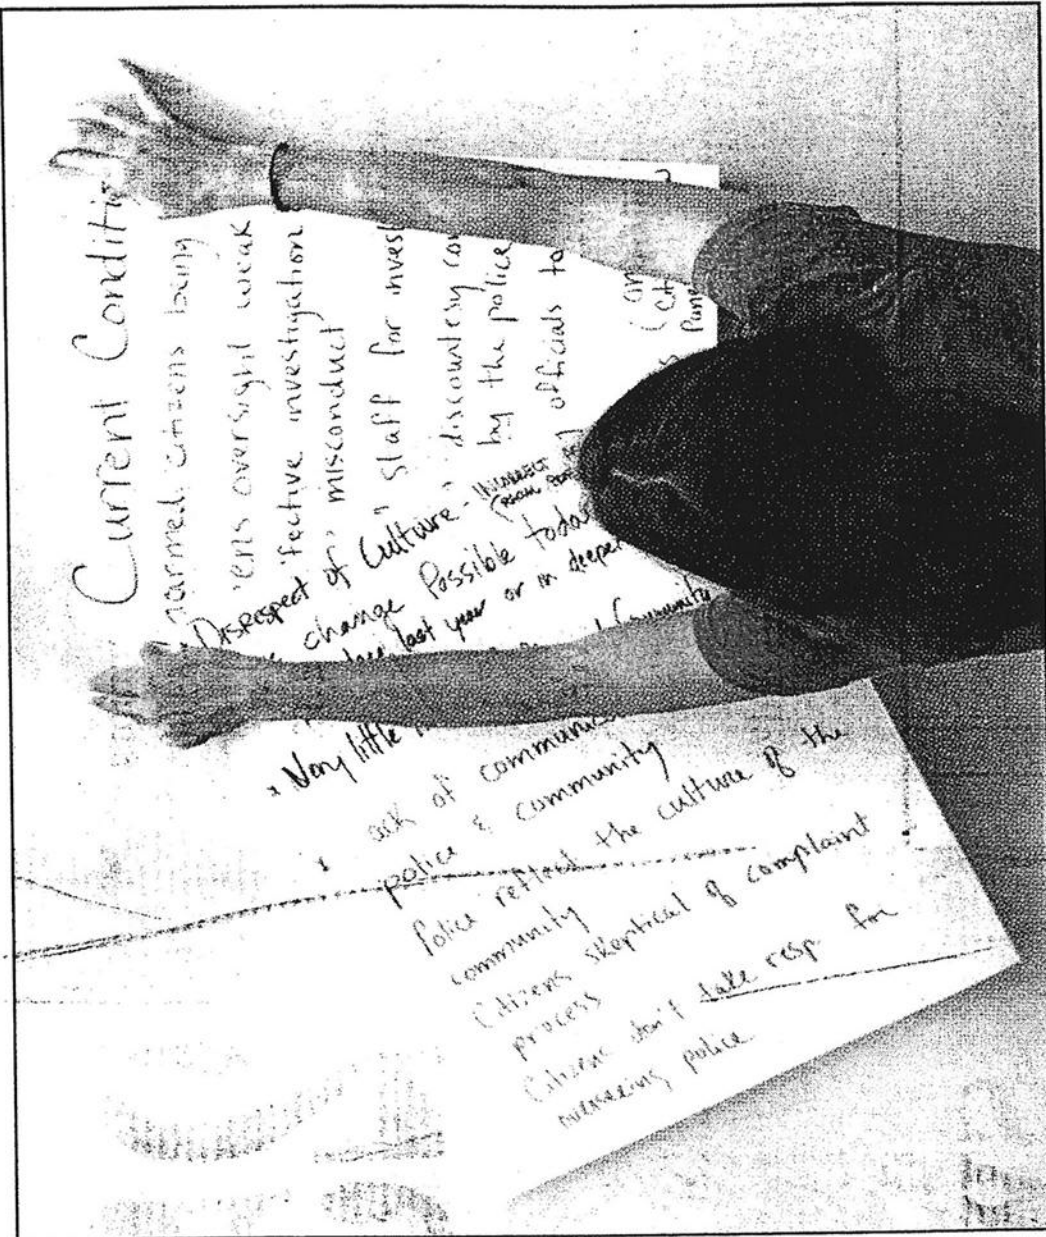 Current Conditi
narmed citizens being
ens oversight weak
fective investigation
" misconduct
" staff for invest
" discourtesy con
by the police
officials to
Disrespect of Culture - INCORRECT
change Possible today
last year or in deeper
Community
* Very little
ack of communic
police & community
Police reflect the culture of the
community
Citizens skeptical of complaint
process
Citizens don't take resp. for
police